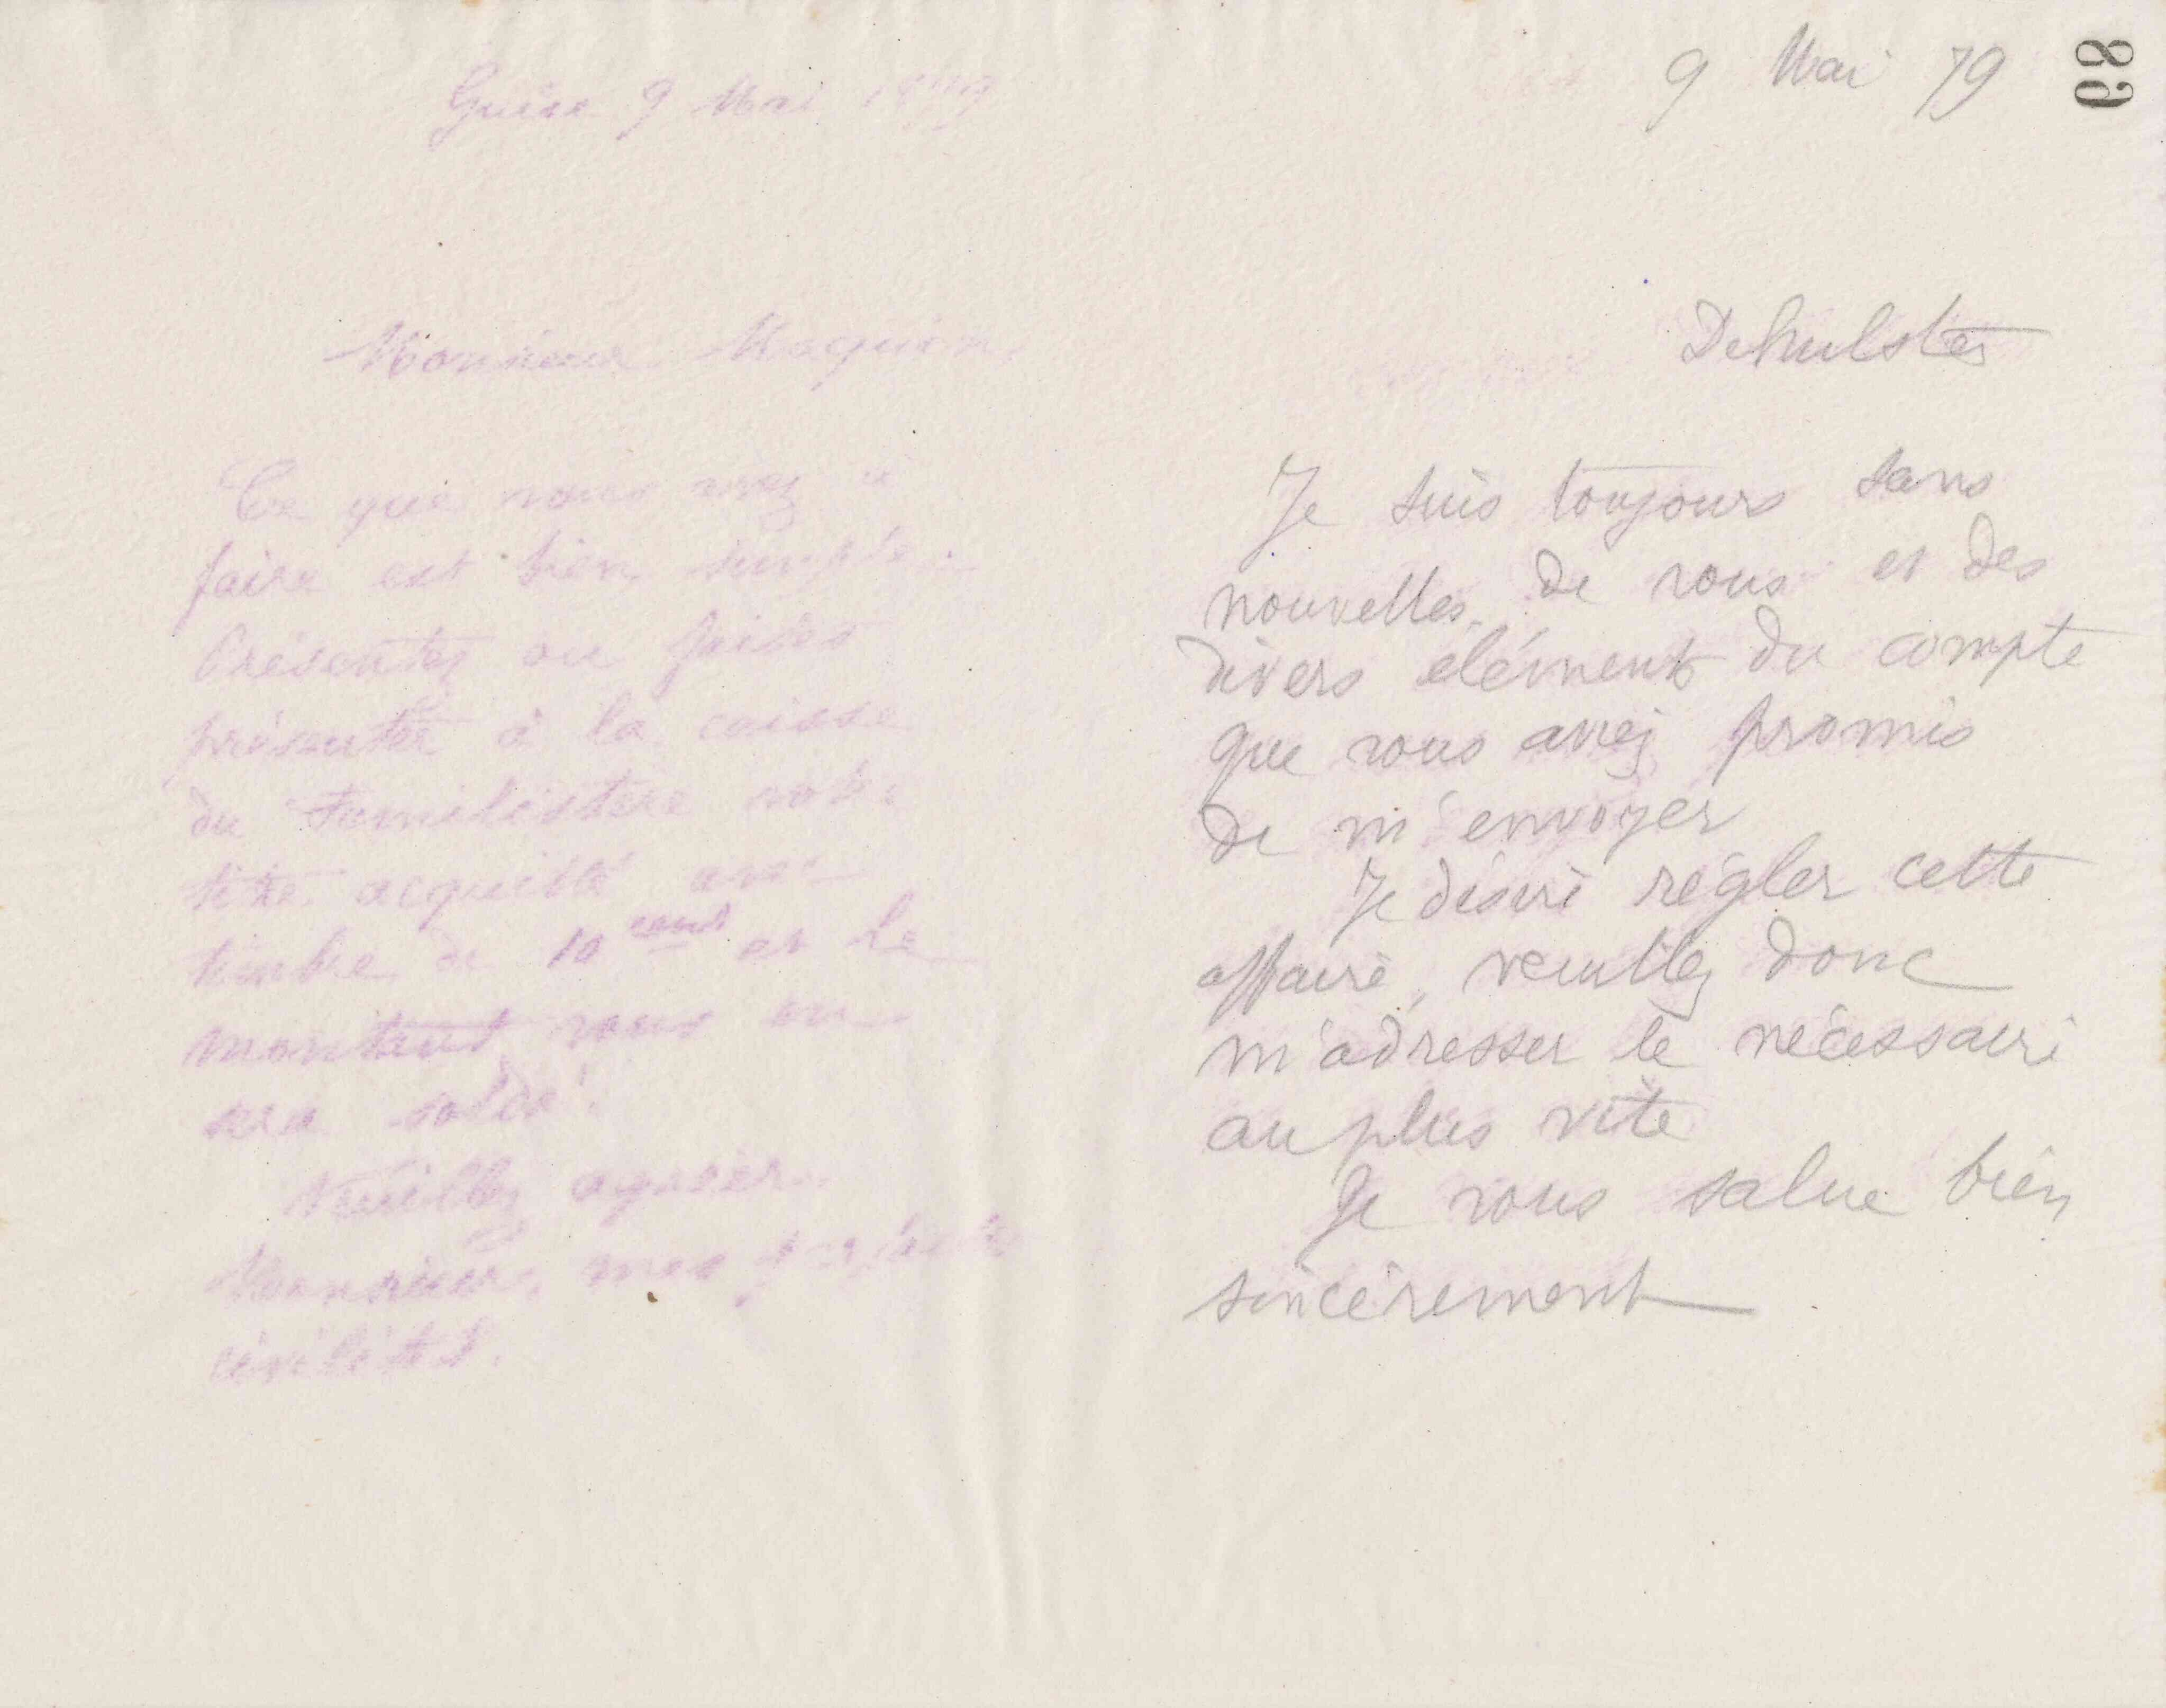 Guise 9 Mai 1879
Monsieur Moquin,
Ce que vous avez à
faire est bien simple.
Présentez ou faites
présenter à la caisse
du Familistère votre
titre acquitté avec
timbre de 10 cent et le
montant vous en
sera soldé.
Veuillez agréer,
Monsieur, mes parfaites
civilités.
89
9 Mai 79
Dehulster
Je suis toujours sans
nouvelles de vous et des
divers élément du compte
que vous aviez promis
de m'envoyer
Je désire régler cette
affaire, veuillez donc
m'adresser le nécessaire
au plus vite
Je vous salue bien
sincèrement